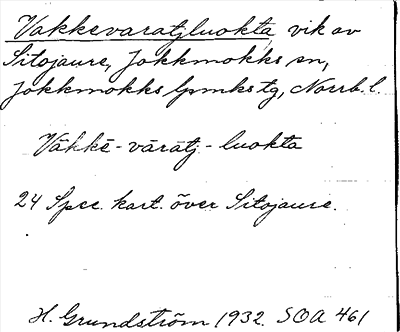 Vakkevaratjluokta, vik av
Sitojaure, Jokkmokks sn,
Jokkmokks lpmks tg, Norrb. l.
Vàkkē-vāratj-luokta
24 Spec. kart. över Sitojaure.
H. Grundström 1932. SOA 461